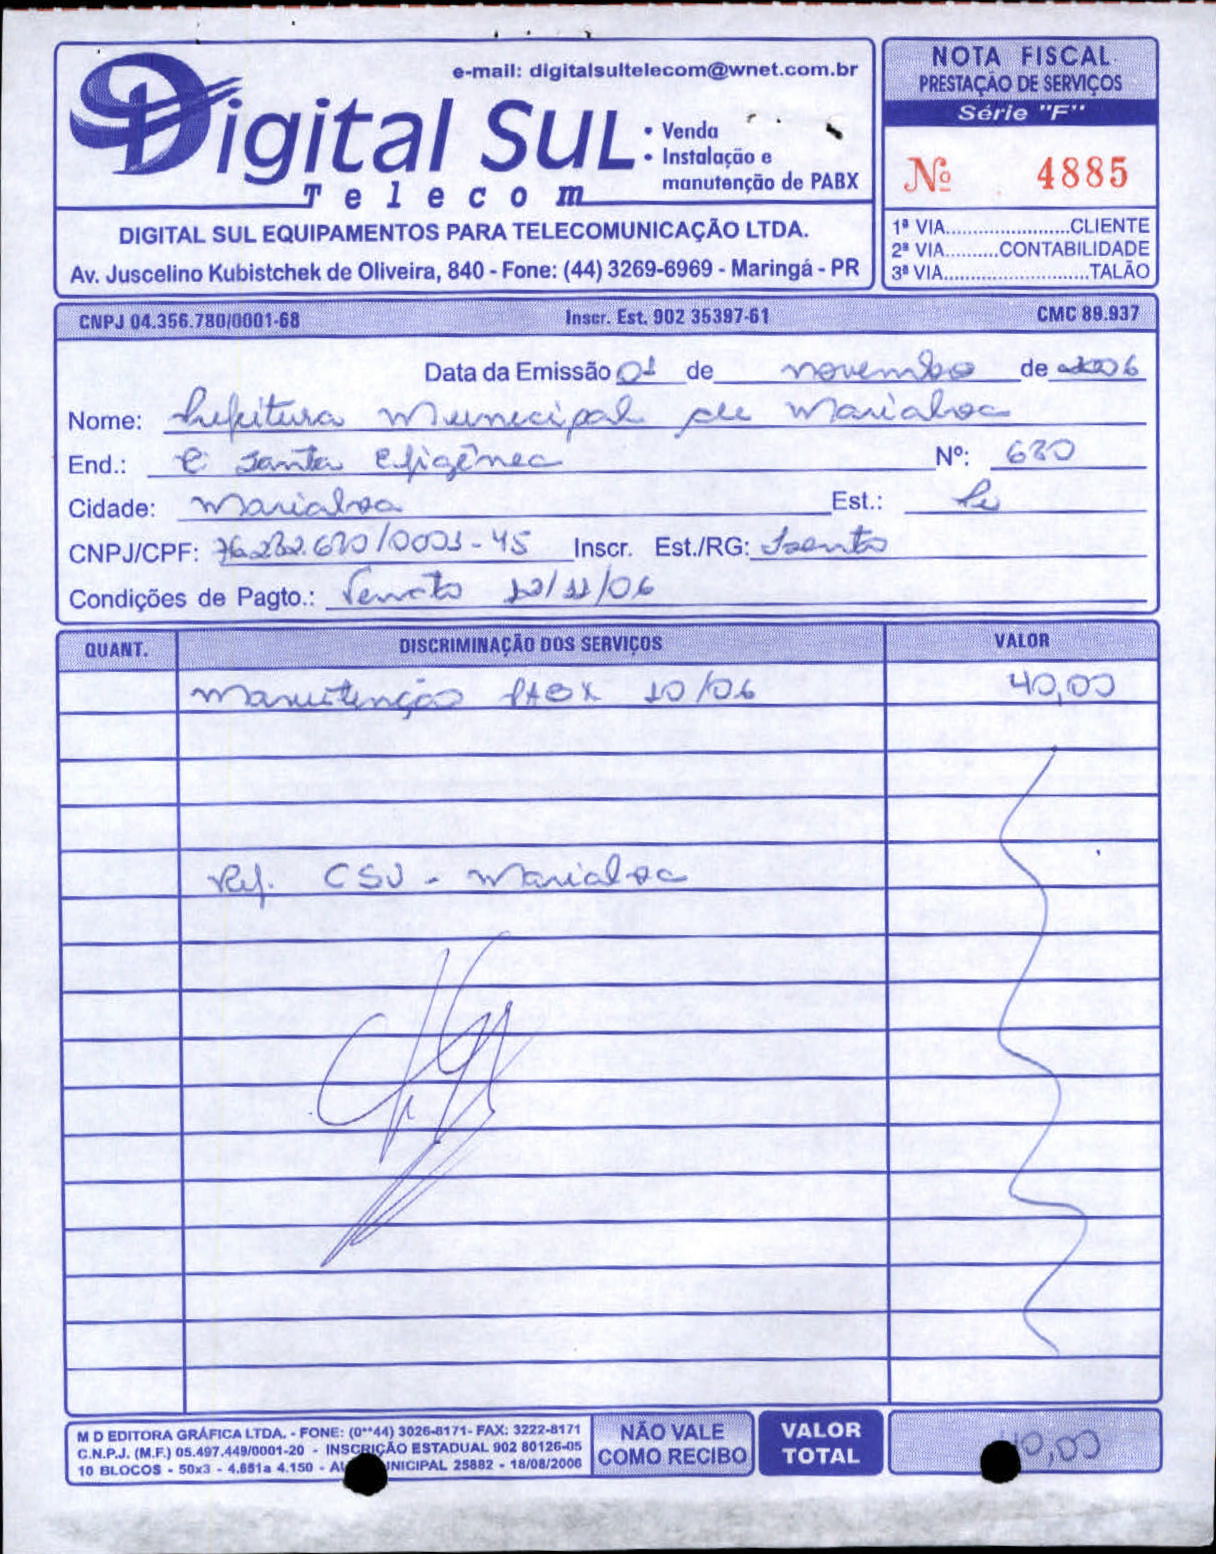 e-mail: digitalsultelecom@wnet.com.br
Digital SUL
Telecom
• Venda
• Instalação e
manutenção de PABX
DIGITAL SUL EQUIPAMENTOS PARA TELECOMUNICAÇÃO LTDA.
Av. Juscelino Kubistchek de Oliveira, 840 - Fone: (44) 3269-6969 - Maringá - PR
NOTA FISCAL
PRESTAÇÃO DE SERVIÇOS
Série "F"
Nº 4885
1ª VIA.....................CLIENTE
2ª VIA..........CONTABILIDADE
3ª VIA...........................TALÃO
CNPJ 04.356.780/0001-68 Inscr. Est. 902 35397-61 CMC 89.937
Data da Emissão 01 de novembro de 2006
Nome: Prefeitura Municipal de Marialva
End.: R Santa Efigênea Nº: 680
Cidade: Marialva Est.: Pr
CNPJ/CPF: 76.282.680/0001-45 Inscr. Est./RG: Isento
Condições de Pagto.: Vencto 12/11/06
QUANT. DISCRIMINAÇÃO DOS SERVIÇOS VALOR
Manutenção PABX 10/06 40,00
Ref. CSU - Marialva
M D EDITORA GRÁFICA LTDA. - FONE: (0**44) 3026-8171- FAX: 3222-8171
C.N.P.J. (M.F.) 05.497.449/0001-20 - INSCRIÇÃO ESTADUAL 902 80126-05
10 BLOCOS - 50x3 - 4.651a 4.150 - 25882 - 18/08/2006
NÃO VALE
COMO RECIBO
VALOR
TOTAL
40,00